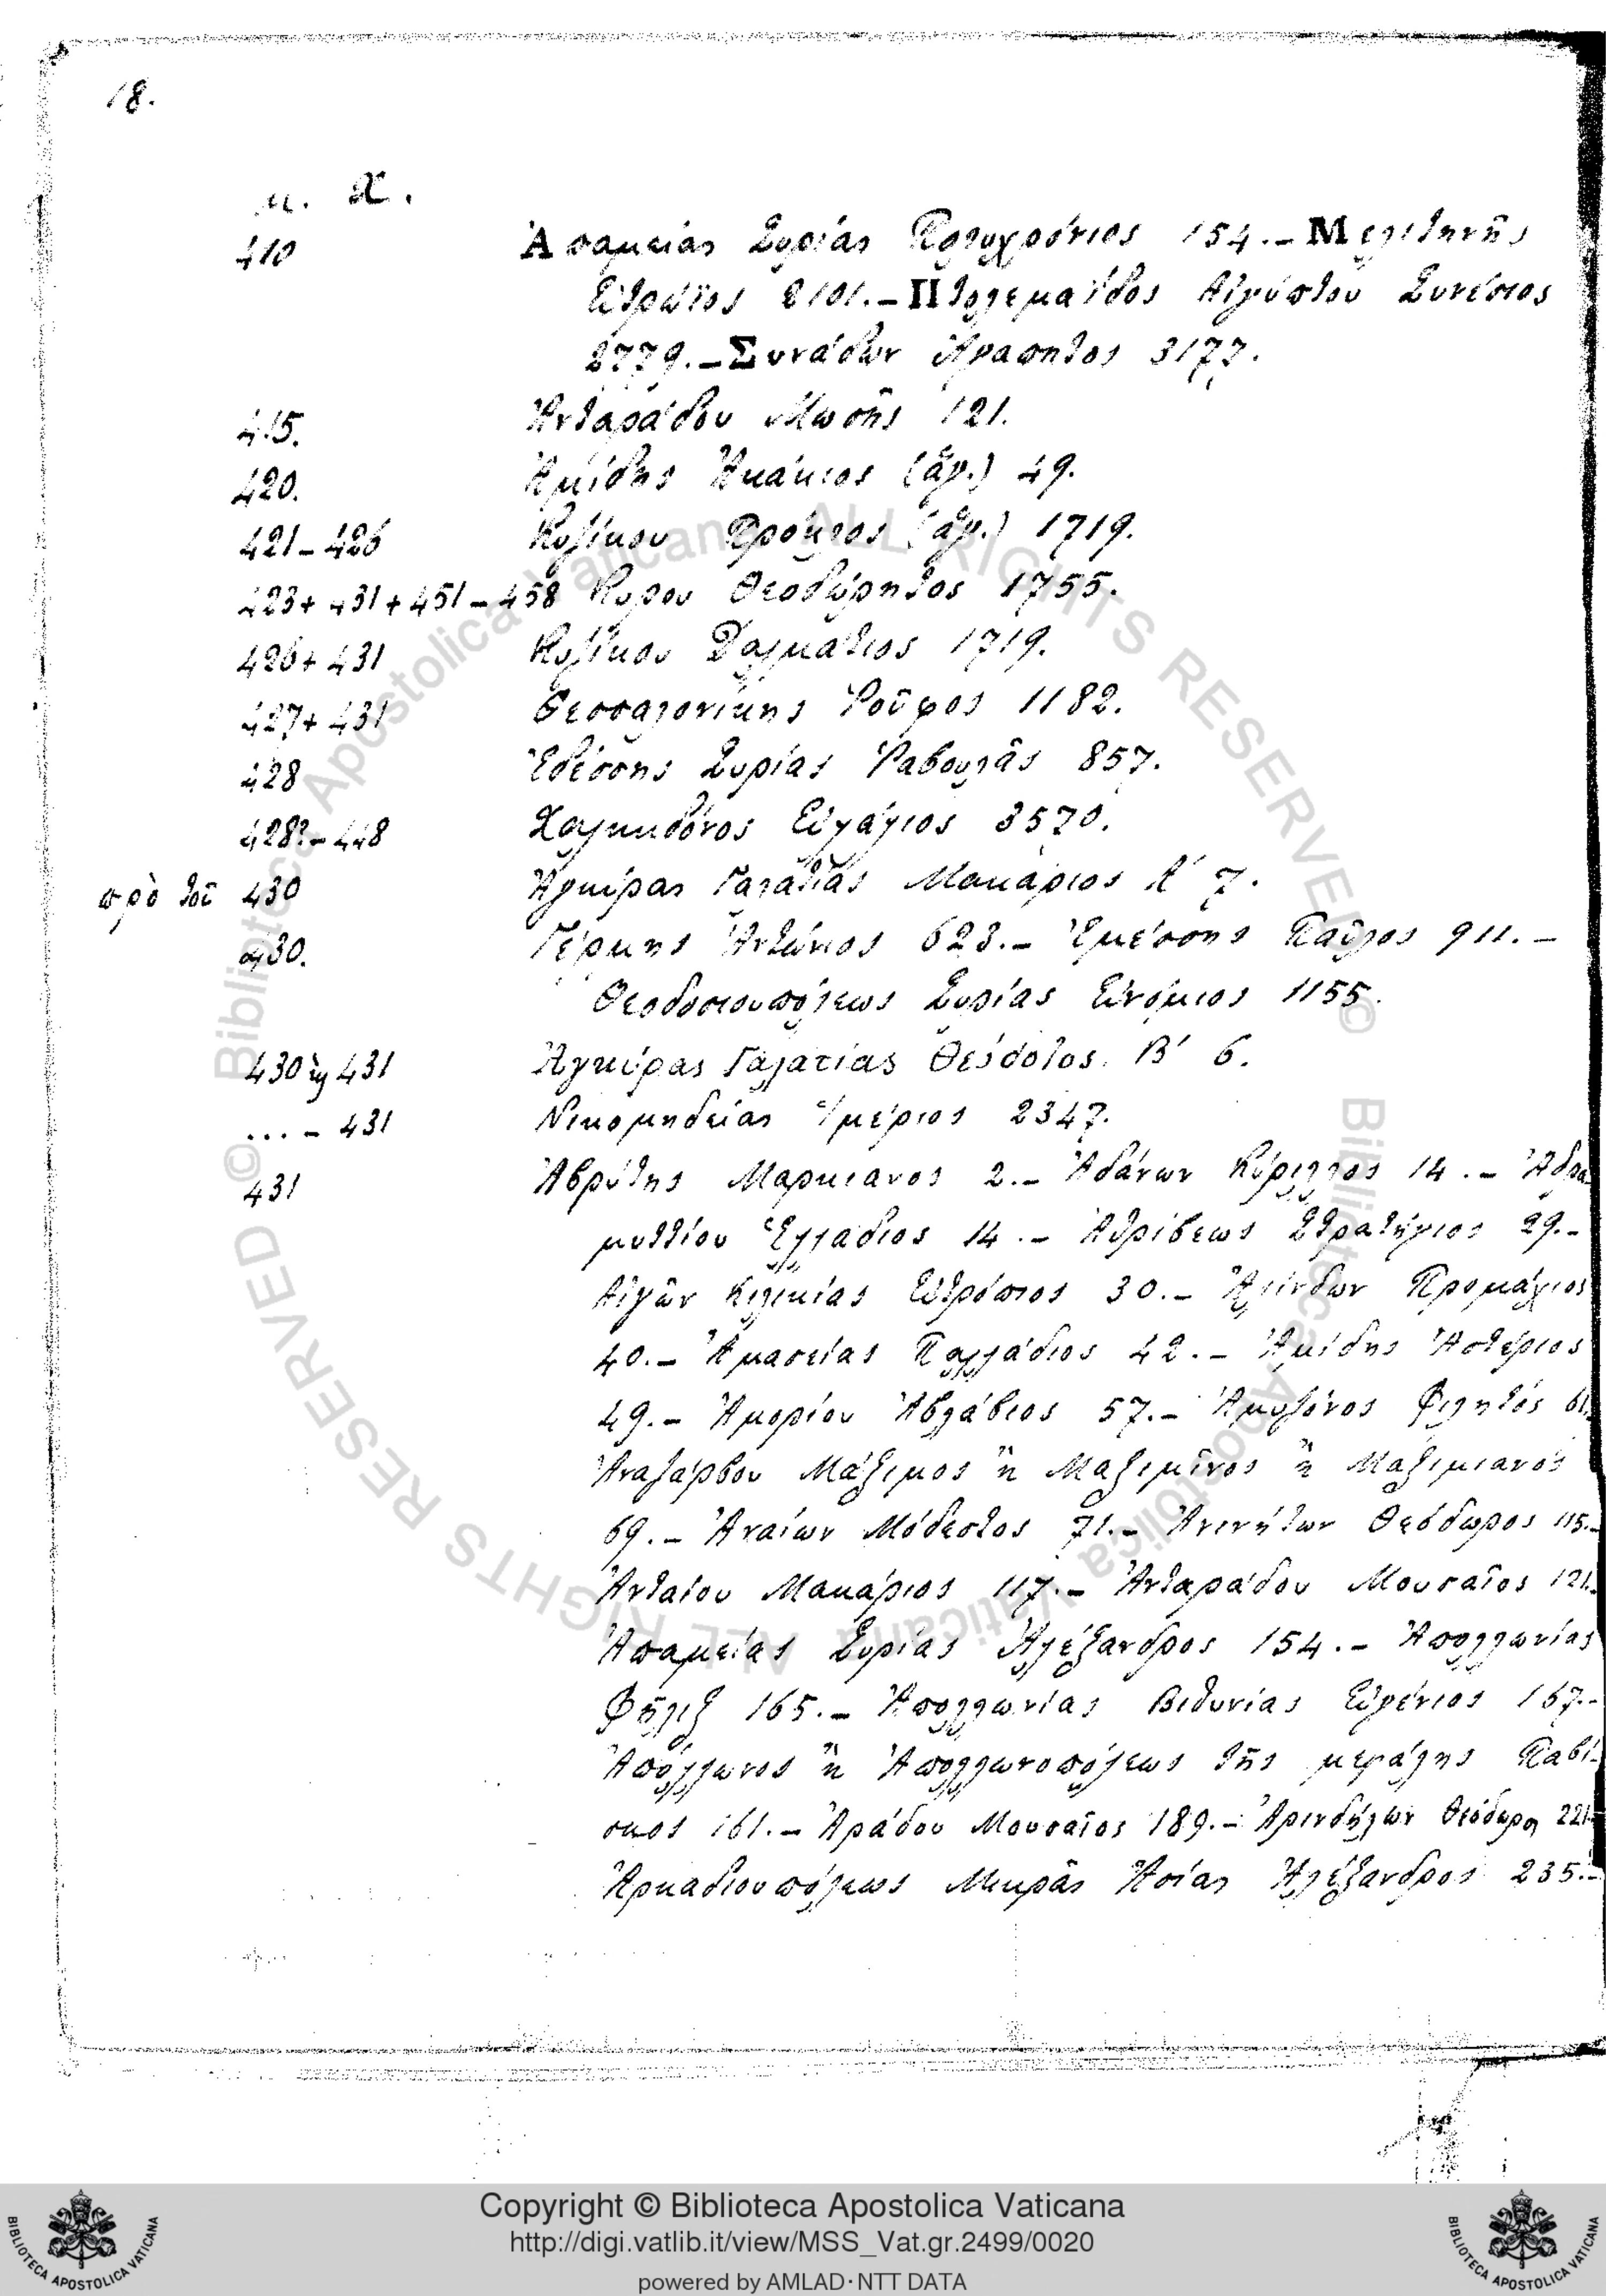 18.
μ. Χ.
410 Ἀπαμείας Συρίας Πολυχρόνιος 154.– Μελιτηνῆς
Ὀτρώϊος 2101.– Πτολεμαΐδος Αἰγύπτου Συνέσιος
2779.– Συνάδων Ἀγαπητὸς 3177.
415. Ἀνταράδου Μωσῆς 121.
420. Ἀμίδης Ἀκάκιος (ἅγ.) 49.
421–426 Κυζίκου Πρόκλος (ἅγ.) 1719.
423+431+451–458 Κύρου Θεοδώρητος 1755.
426+431 Κυζίκου Δαλμάτιος 1719.
427+431 Θεσσαλονίκης Ῥοῦφος 1182.
428 Ἐδέσσης Συρίας Ῥαβουλᾶς 857.
428?–448 Χαλκηδόνος Εὐλάλιος 3570.
πρὸ τοῦ 430 Ἀγκύρας Γαλατίας Μακάριος Α΄ 7.
430. Γέρμης Ἀντώνιος 623.– Ἐμέσσης Παῦλος 911.–
Θεοδοσιουπόλεως Συρίας Εὐνόμιος 1155.
430 ϗ 431 Ἀγκύρας Γαλατίας Θεόδοτος Β΄ 6.
...–431 Νικομηδείας Ἱμέριος 2347.
431 Ἀβρύτης Μαρκιανὸς 2.– Ἀδάνων Κύριλλος 14.– Ἀδρα-
μυττίου Ἑλλάδιος 14.– Ἀθρίβεως Στρατήγιος 29.–
Αἰγῶν Κιλικίας Εὐτρόπιος 30.– Ἀλίνδων Προμάχιος
40.– Ἀμασείας Παλλάδιος 42.– Ἀμίδης Ἀστέριος
49.– Ἀμορίου Ἀβλάβιος 57.– Ἀμυζόνος Φιλητός 61.
Ἀναζάρβου Μάξιμος ἢ Μαξιμῖνος ἢ Μαξιμιανὸς
69.– Ἀναίων Μόδεστος 71.– Ἀνινήτων Θεόδωρος 115.–
Ἀνταίου Μακάριος 117.– Ἀνταράδου Μουσαῖος 121.
Ἀπαμείας Συρίας Ἀλέξανδρος 154.– Ἀπολλωνίας
Φῆλιξ 165.– Ἀπολλωνίας Βιθυνίας Εὐγένιος 167.–
Ἀπόλλωνος ἢ Ἀπολλωνοπόλεως τῆς μεγάλης Παβί-
σκος 161.– Ἀράδου Μουσαῖος 189.– Ἀρινδήλων Θεόδωρος 221.–
Ἀρκαδιουπόλεως Μικρᾶς Ἀσίας Ἀλέξανδρος 235.–
© Biblioteca Apostolica Vaticana ALL RIGHTS RESERVED
© Biblioteca Apostolica Vaticana ALL RIGHTS RESERVED
BIBLIOTECA APOSTOLICA VATICANA
Copyright © Biblioteca Apostolica Vaticana
http://digi.vatlib.it/view/MSS_Vat.gr.2499/0020
powered by AMLAD·NTT DATA
BIBLIOTECA APOSTOLICA VATICANA